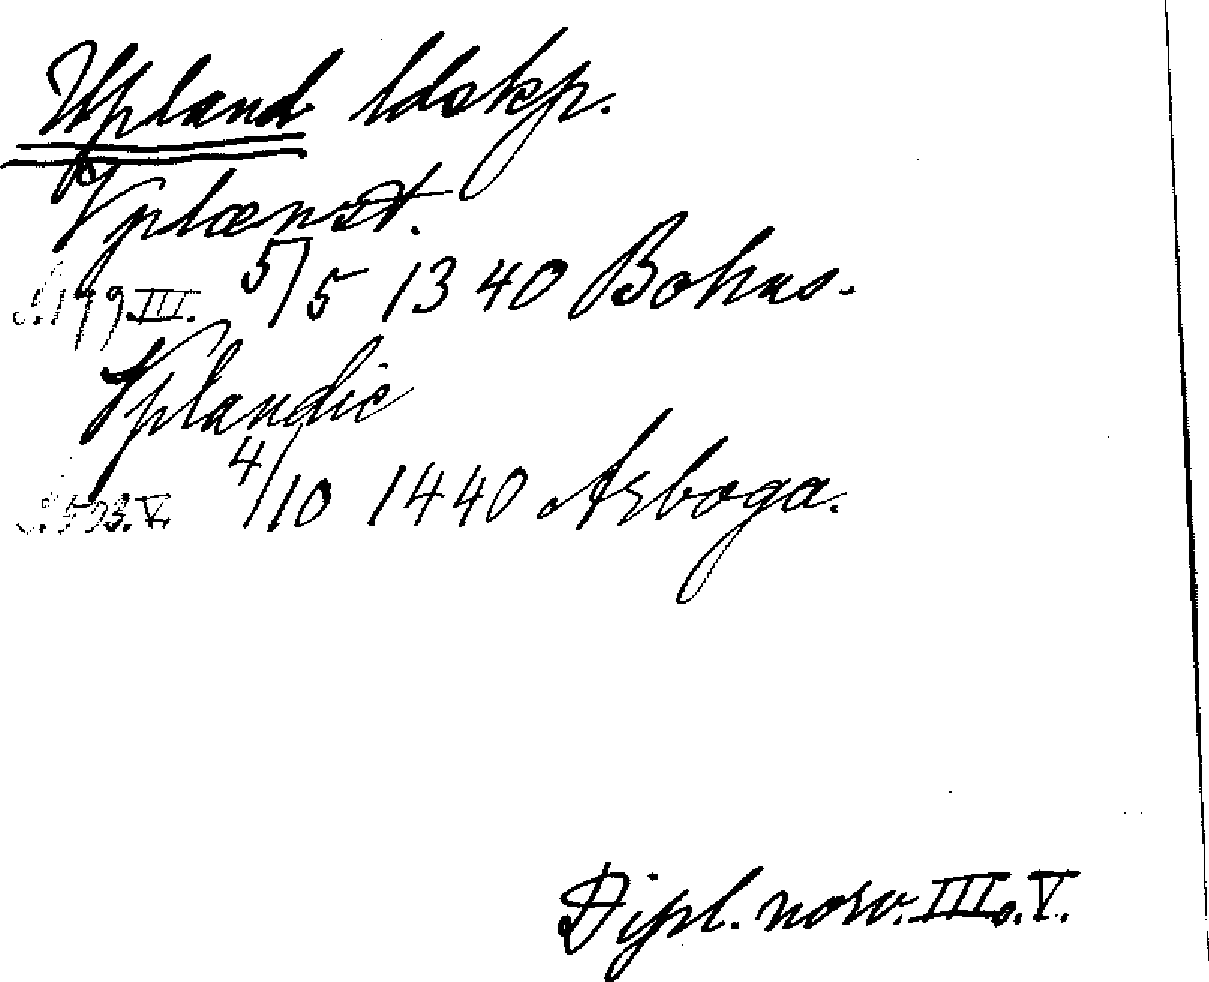 Upland ldskp.
Vplænst.
S. 199 III. 5/5 1340 Bohus.
Vplandie
S. 523. V. 4/10 1440 Arboga.
Dipl. norv. III o. V.